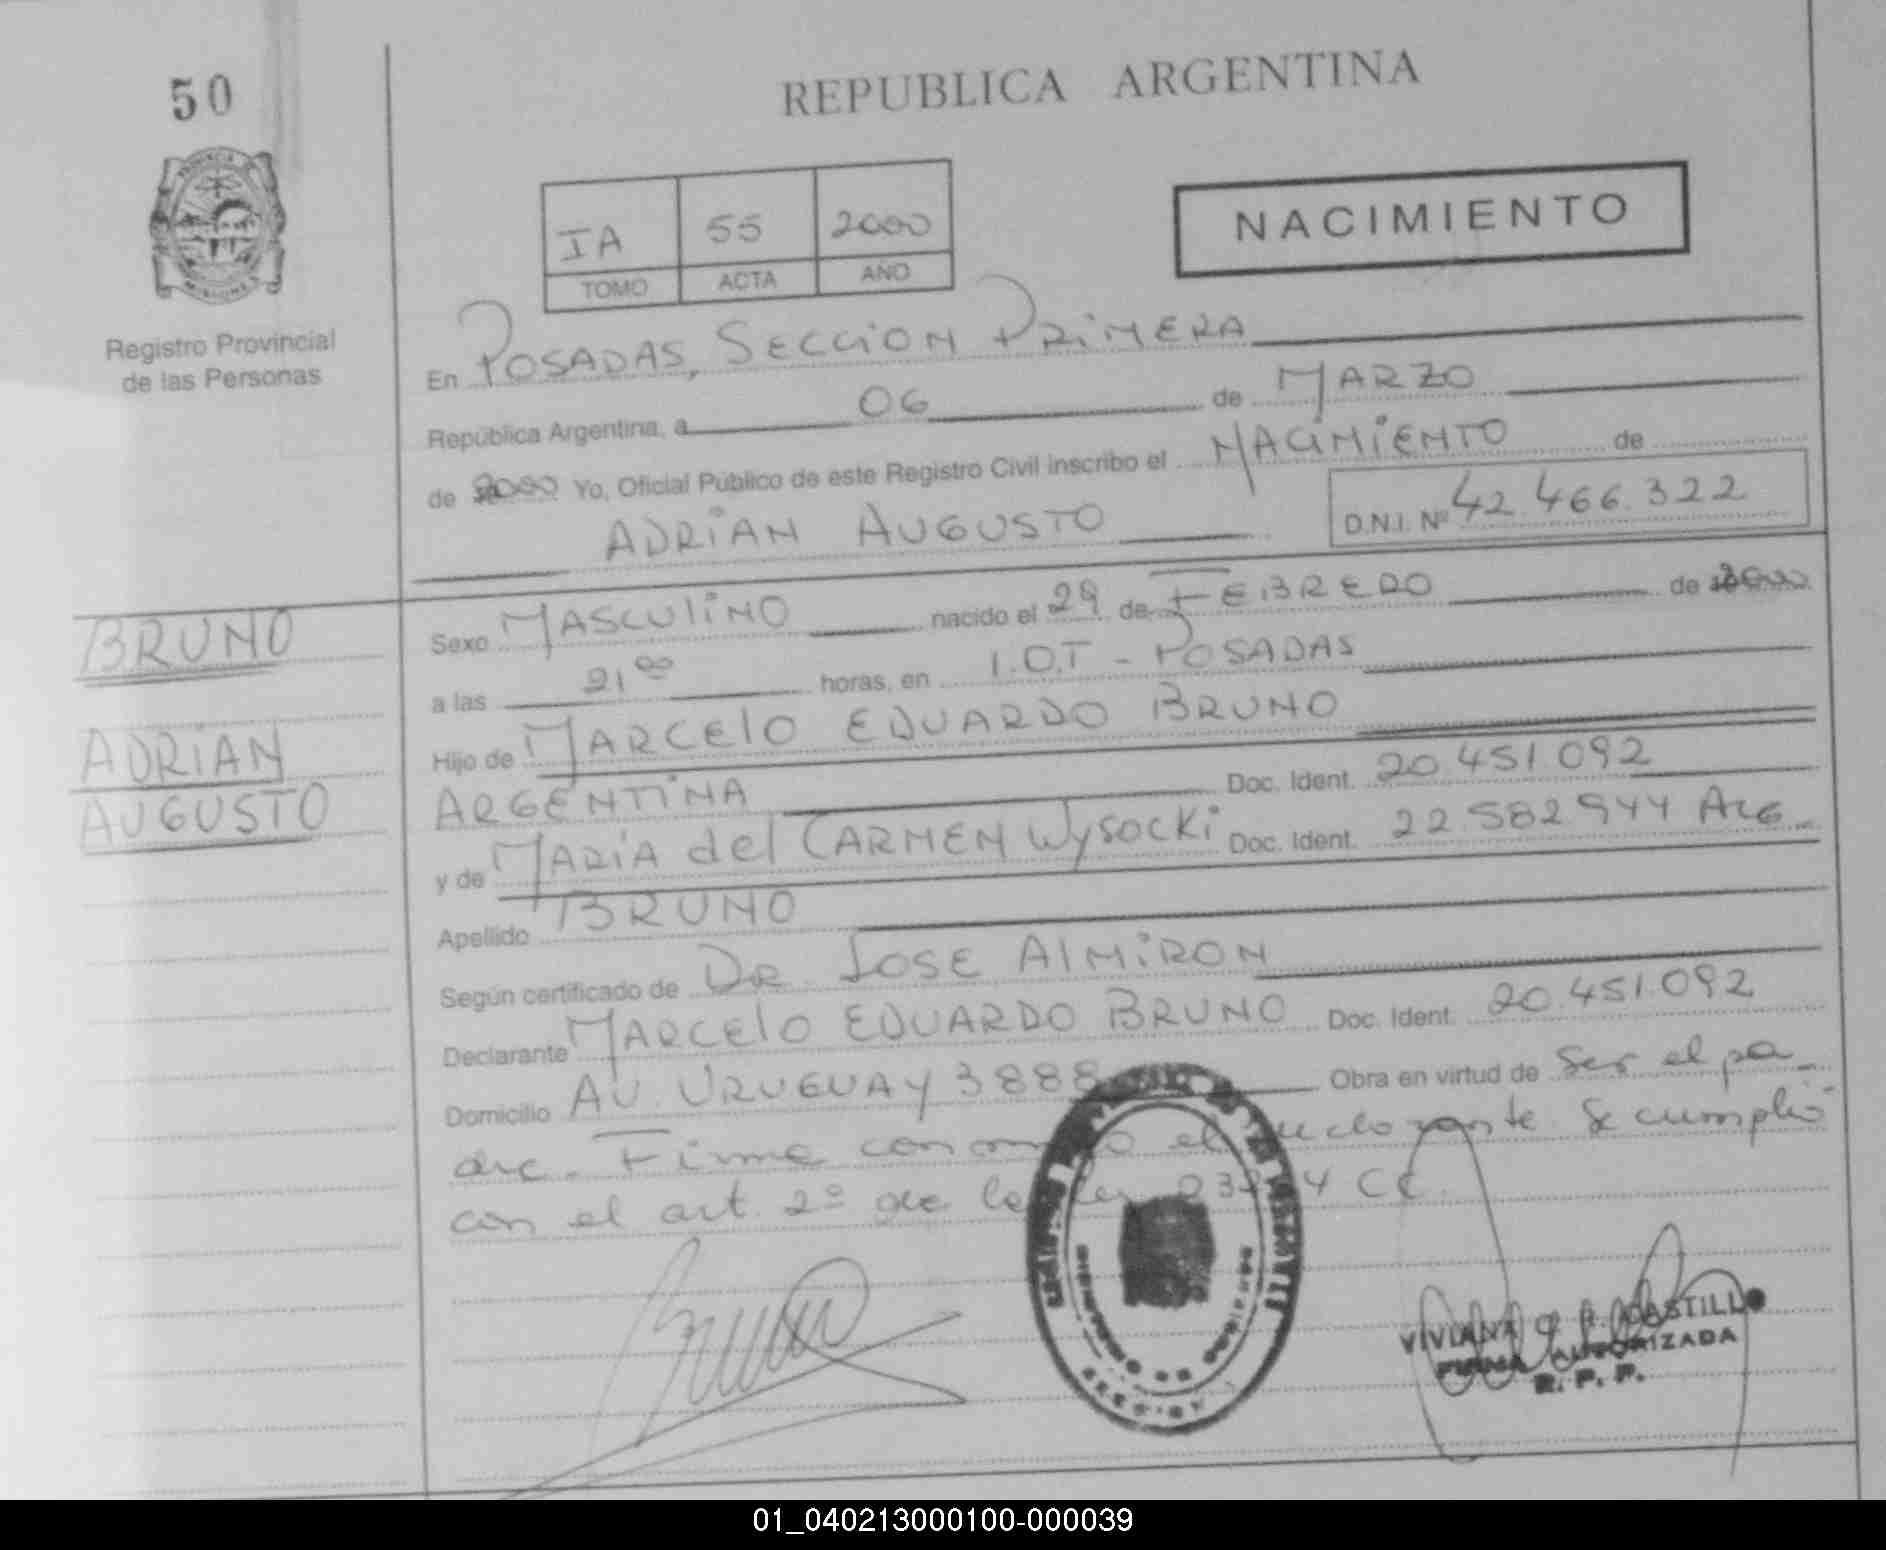 50
REPUBLICA ARGENTINA
IA 55 2000
TOMO ACTA AÑO
NACIMIENTO
Registro Provincial
de las Personas
En POSADAS, SECCION PRIMERA
República Argentina, a 06 de MARZO
de 2000 Yo, Oficial Público de este Registro Civil inscribo el NACIMIENTO de
ADRIAN AUGUSTO D.N.I. Nº 42.466.322
BRUNO
ADRIAN
AUGUSTO
Sexo MASCULINO nacido el 29 de FEBRERO de 2000
a las 21 00 horas, en I.O.T - POSADAS
Hijo de MARCELO EDUARDO BRUNO
ARGENTINA Doc. Ident. 20.451.092
y de MARIA del CARMEN WYSOCKI Doc. Ident. 22.582.944 ARG
Apellido BRUNO
Según certificado de DR. JOSE ALMIRON
Declarante MARCELO EDUARDO BRUNO Doc. Ident. 20.451.092
Domicilio AV. URUGUAY 3888 Obra en virtud de ser el pa
dre. Firma el Se cumplió
con el art. 2º de CC.
Bruno
VIVIANA CASTILLO
FIRMA AUTORIZADA
R. P. P.
01_040213000100-000039